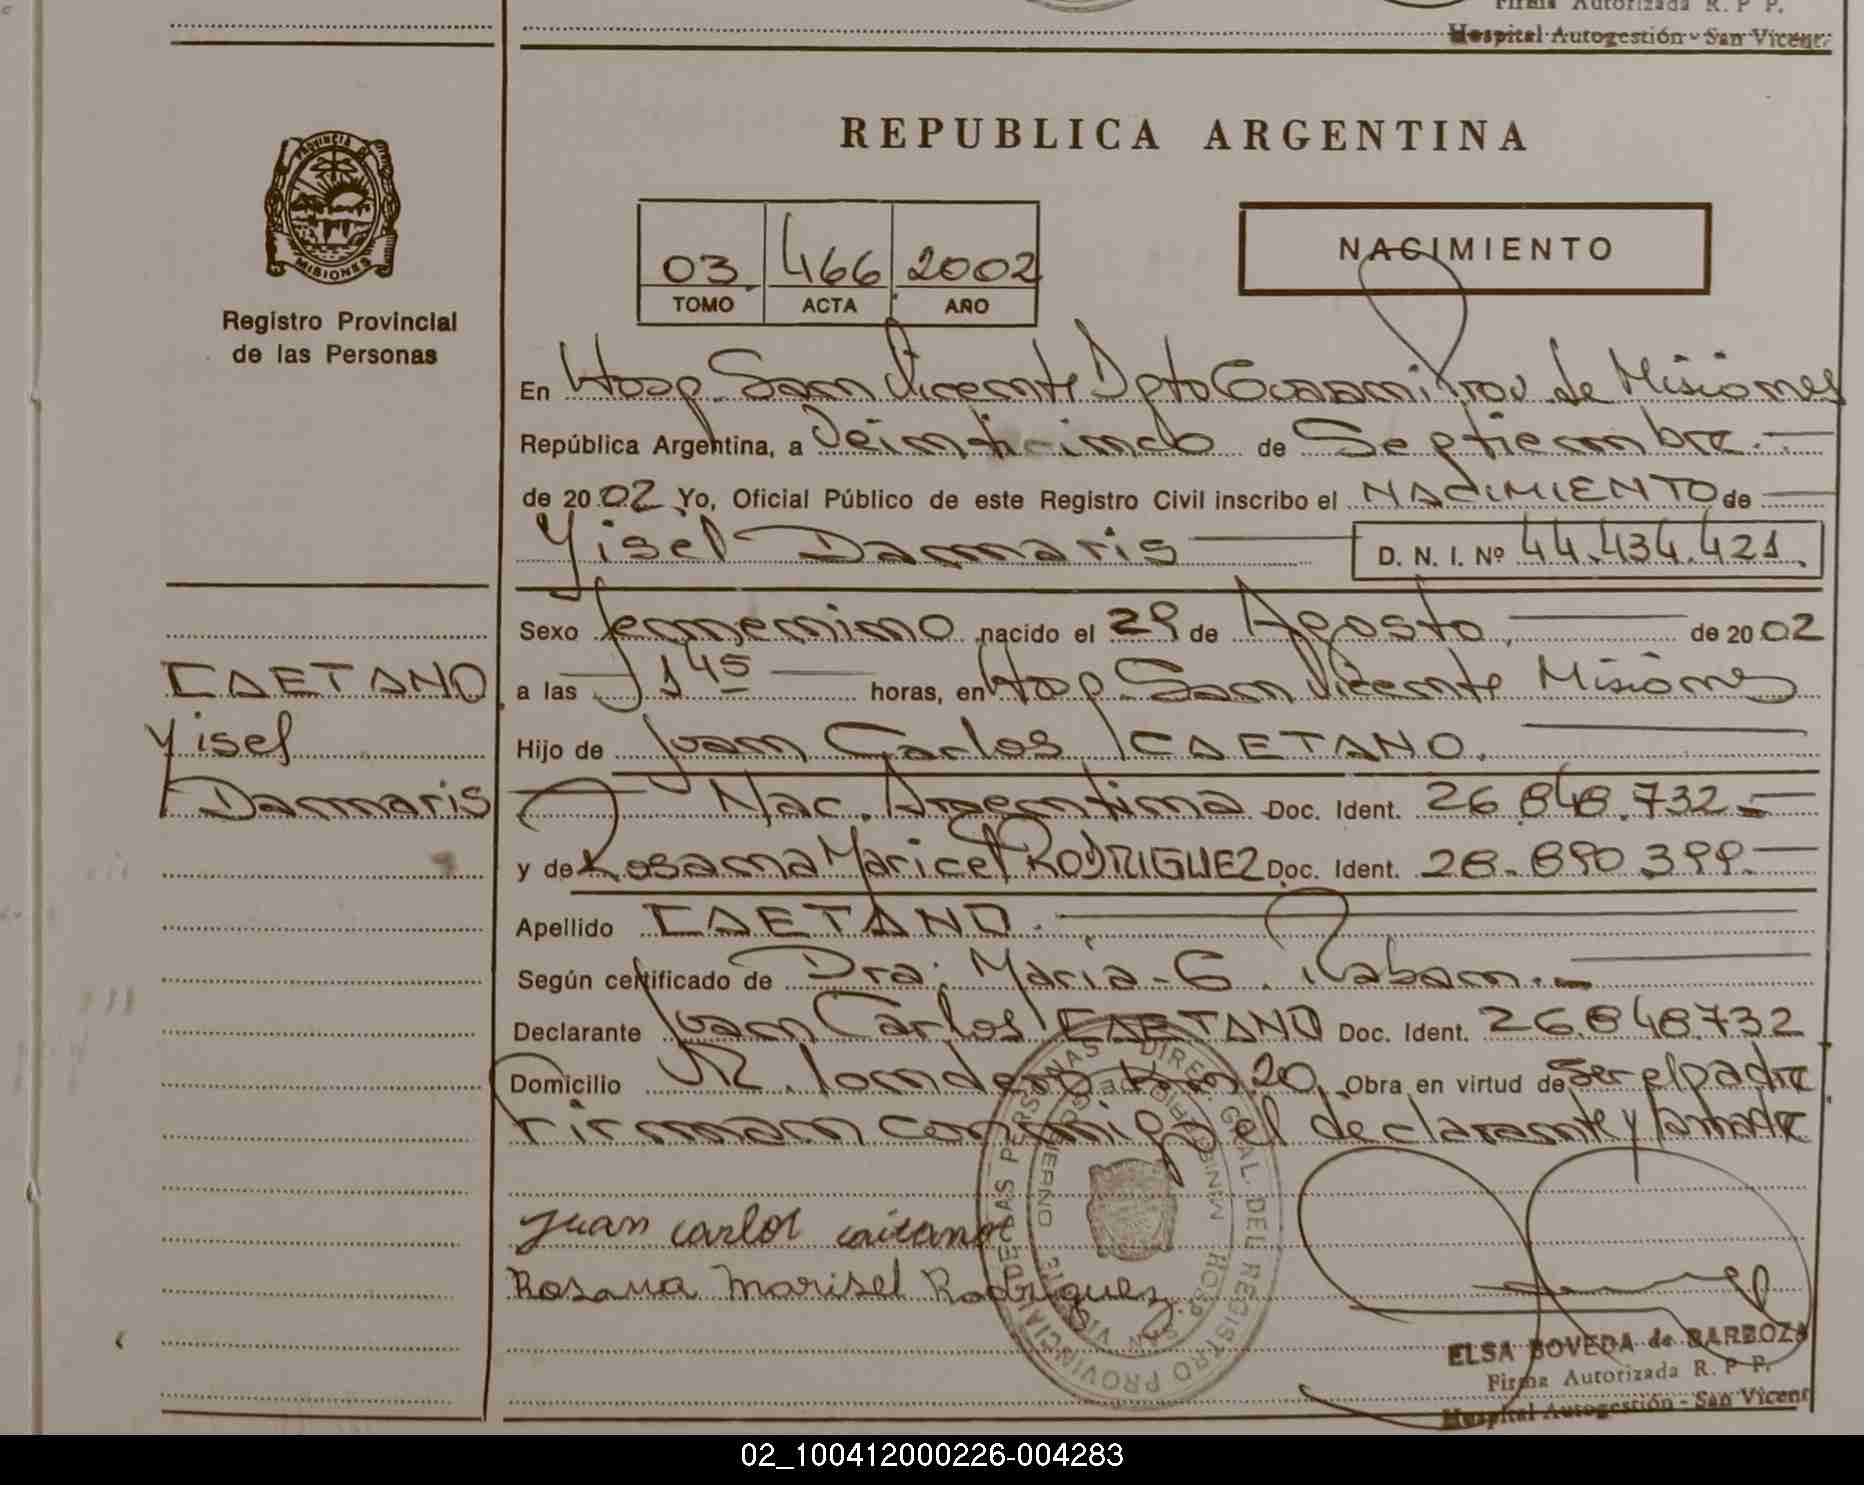 Firma Autorizada R. P P.
Hospital Autogestión - San Vicent
PROVINCIA DE
MISIONES
Registro Provincial
de las Personas
REPUBLICA ARGENTINA
03 466 2002
TOMO ACTA AÑO
NACIMIENTO
En Hosp. San Vicente Dpto Guarani Prov. de Misiones
República Argentina, a Veinticinco de Septiembre.
de 2002 Yo, Oficial Público de este Registro Civil inscribo el NACIMIENTO de
Yisel Damaris D. N. I. Nº 44.434.421.
Sexo femenino nacido el 29 de Agosto, de 2002
a las 1 45 horas, en Hosp. San Vicente Misiones
Hijo de Juan Carlos CAETANO.
Nac. Argentina Doc. Ident. 26.848.732.-
y de Rosana Maricel RODRIGUEZ Doc. Ident. 28.890.399.
Apellido CAETANO.
Según certificado de Dra. Maria - G. Raban.-
Declarante Juan Carlos CAETANO Doc. Ident. 26.848.732
Domicilio Km 20, Obra en virtud de Ser el padre
Firman conmigo el declarante y la madre
CAETANO
Yisel
Damaris
Juan carlos caitano
Rosana Marisel Rodriguez.
DIREC. GRAL. DEL REGISTRO PROVINCIAL DE LAS PERSONAS
MINISTERIO DE GOBIERNO
HOSP. SAN VICENTE
ELSA BOVEDA de BARBOZA
Firma Autorizada R. P P.
Hospital Autogestión - San Vicent
02_100412000226-004283